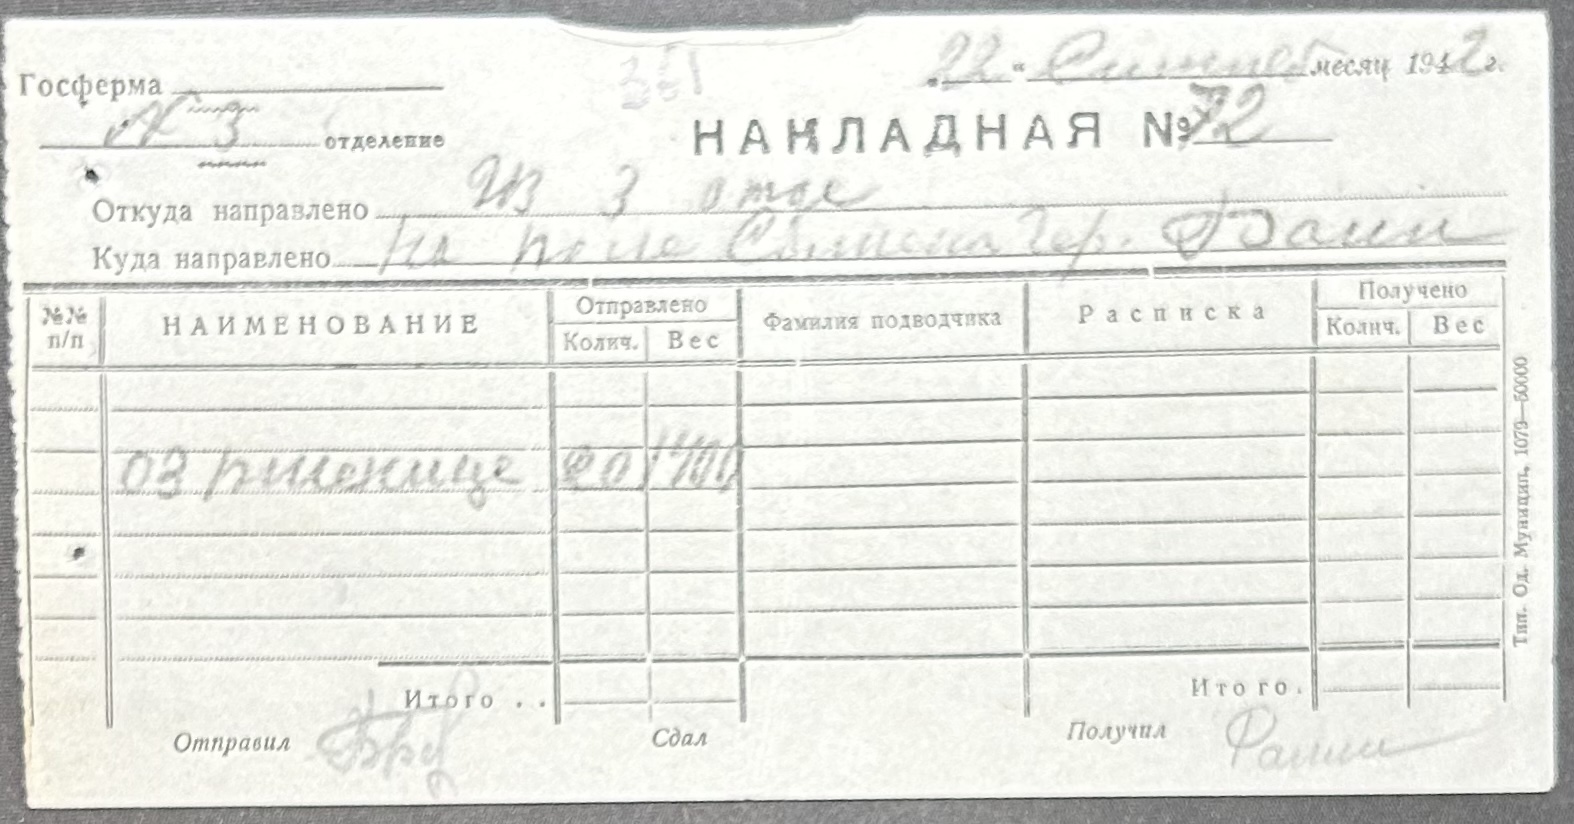 Госферма
№ 3 отделение
351
„22“ месяц 1942 г.
НАКЛАДНАЯ № 72
Откуда направлено Из 3 отде
Куда направлено На поле гер.
№№ п/п
НАИМЕНОВАНИЕ
Отправлено
Колич. Вес
Фамилия подводчика
Расписка
Получено
Колич. Вес
оз пшенице 20 1700
Итого . .
Итого .
Отправил
Сдал
Получил
Тип. Од. Муницип, 1079—50000